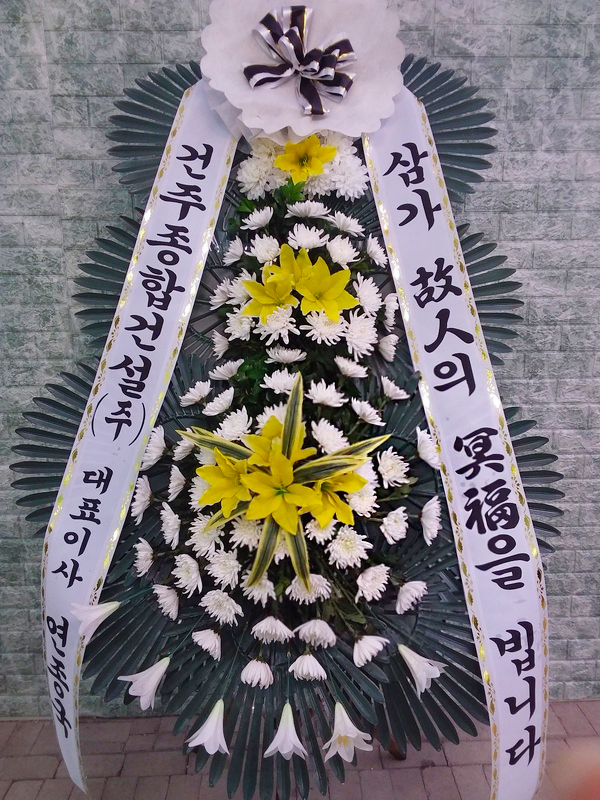 삼가 故人의 冥福을 빕니다
건주종합건설(주) 대표이사 연종구